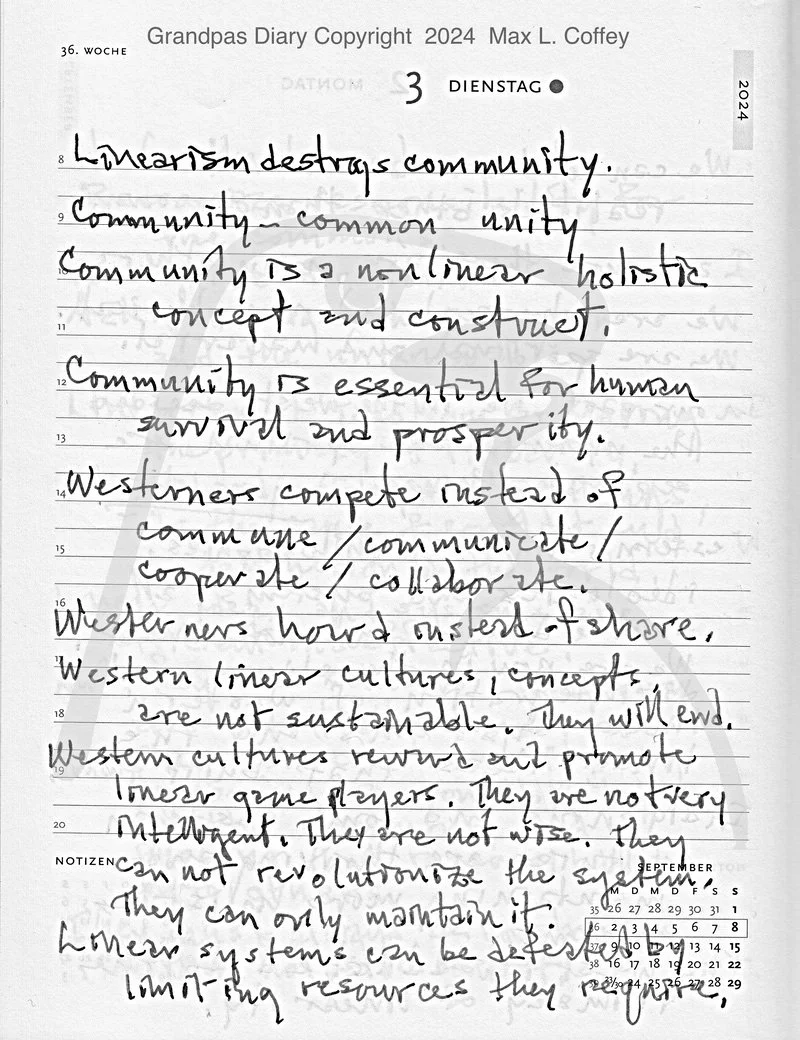 Grandpas Diary Copyright 2024 Max L. Coffey
36. WOCHE
3 DIENSTAG
2024
8 Linearism destroys community.
9 Community - common unity
10 Community is a nonlinear holistic
11 concept and construct.
12 Community is essential for human
13 survival and prosperity.
14 Westerners compete instead of
15 commune / communicate /
cooperate / collaborate.
16 Westerners hourd instead of share.
17 Western linear cultures, concepts,
18 are not sustainable. They will end.
19 Western cultures reward and promote
linear game players. They are not very
20 intelligent. They are not wise. They
NOTIZEN can not revolutionize the system.
They can only maintain it.
Linear systems can be defeated by
limiting resources they require.
SEPTEMBER
M D M D F S S
35 26 27 28 29 30 31 1
36 2 3 4 5 6 7 8
37 9 10 11 12 13 14 15
38 16 17 18 19 20 21 22
39 23/30 24 25 26 27 28 29